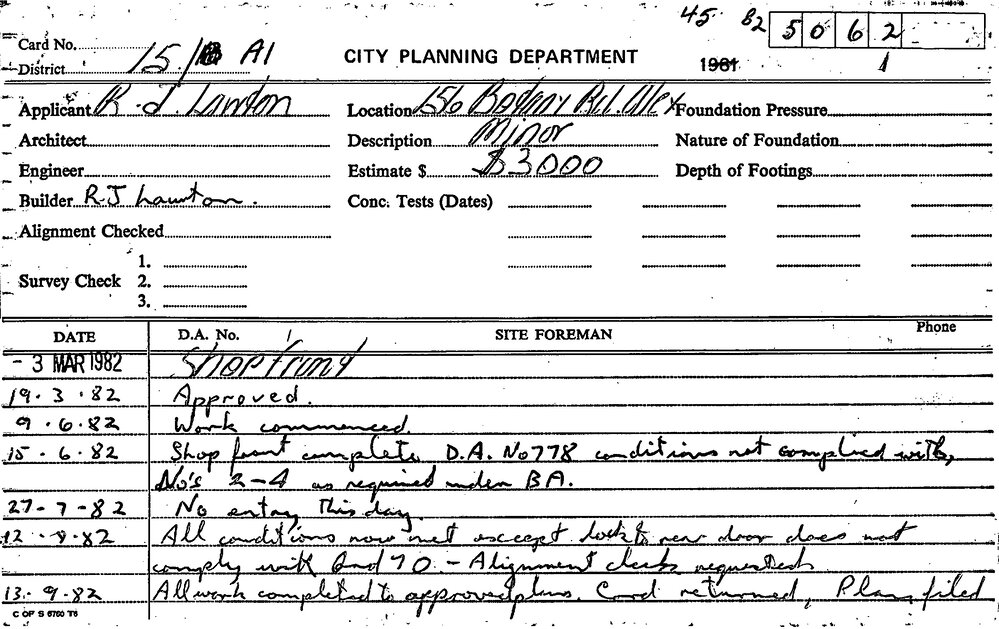 45 82 5062
Card No.
District 15/ A1 CITY PLANNING DEPARTMENT 1981 1
Applicant R. J. Lawton Location 156 Botany Rd. Alex Foundation Pressure
Architect Description Minor Nature of Foundation
Engineer Estimate $ $3000 Depth of Footings
Builder R.J Lawton. Conc. Tests (Dates)
Alignment Checked
1.
Survey Check 2.
3.
DATE D.A. No. SITE FOREMAN Phone
- 3 MAR 1982 Shop front
19.3.82 Approved.
9.6.82 Work commenced.
15.6.82 Shop front complete D.A. No 778 conditions not complied with,
No's 2-4 as required under BA.
27-7-82 No entry this day
12 82 All conditions now met except lock to rear door does not
comply with Ord 70. - Alignment check requested
13.9.82 All work completed to approved plans. Card returned, Plan filed
C OF S 6760 T6